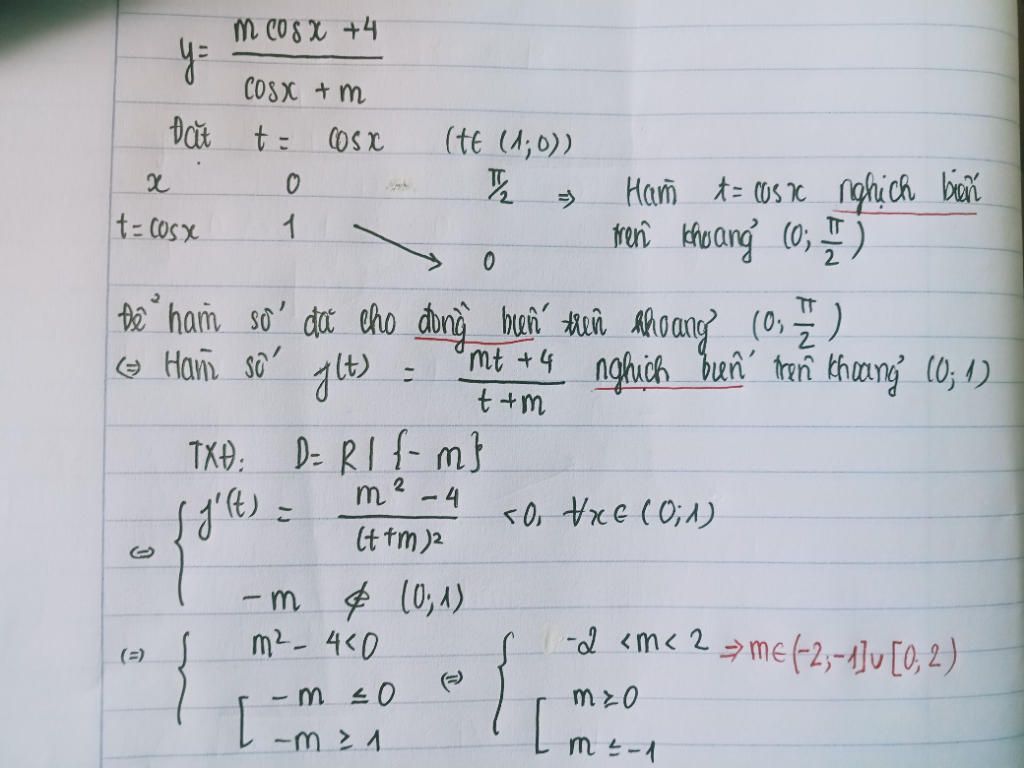 y = (m cosx + 4) / (cosx + m)
Đặt t = cosx (t∈ (1;0))
x 0 π/2 ⇒ Hàm t = cosx nghịch biến
t = cosx 1 0 trên khoảng (0; π/2)
Để hàm số đã cho đồng biến trên khoảng (0; π/2)
⇔ Hàm số y(t) = (mt + 4) / (t + m) nghịch biến trên khoảng (0;1)
TXĐ: D = R \ {- m}
⇔ { y'(t) = (m² - 4) / (t+m)² <0, ∀x ∈ (0;1)
-m ∉ (0;1)
(=) { m² - 4<0 ⇔ { -2 < m < 2 ⇒ m∈ (-2;-1]∪[0;2)
[ -m ≤ 0 [ m ≥ 0
-m ≥ 1 m ≤ -1